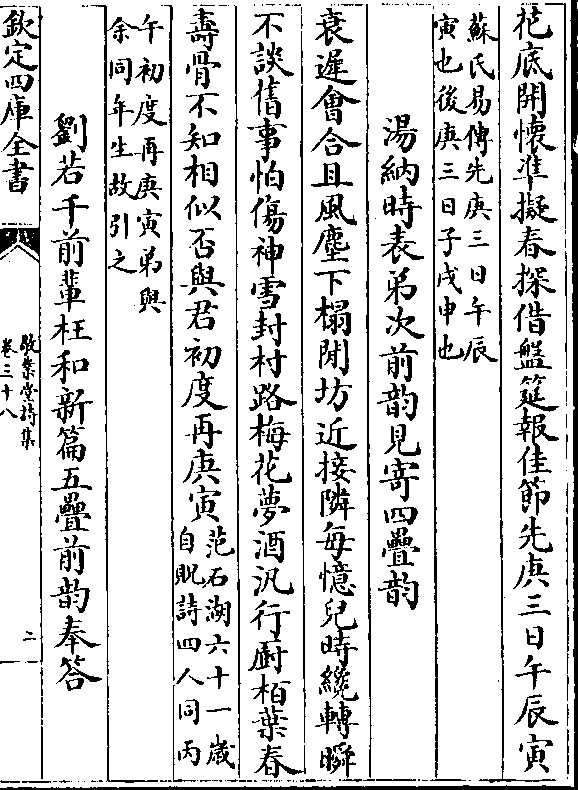 花底開懷準擬春探借盤筵報佳節先庚三日午辰寅
蘇氏易傳先庚三日午辰
寅也後庚三日子戌申也
湯納時表弟次前韵見寄四疊韵
衰遲會合且風塵下榻閒坊近接隣每憶兒時纔轉瞬
不談舊事怕傷神雪封村路梅花夢酒汎行廚柏葉春
壽骨不知相似否與君初度再庚寅
范石湖六十一歲
自貺詩四人同丙
午初度再庚寅弟與
余同年生故引之
劉若千前輩枉和新篇五疊前韵奉答
欽定四庫全書
敬業堂詩集
卷三十八
二